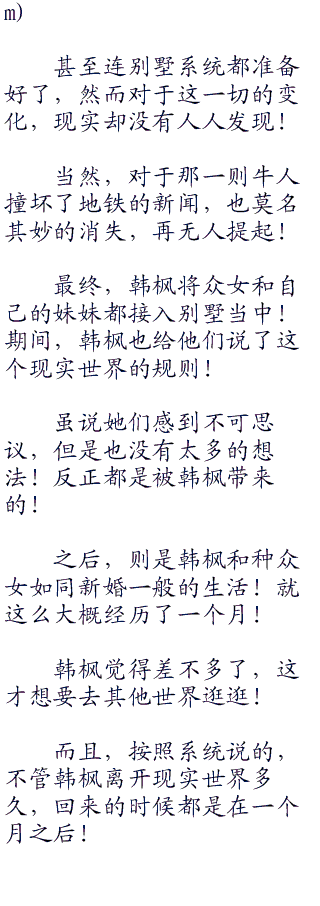 m)
甚至连别墅系统都准备
好了，然而对于这一切的变
化，现实却没有人人发现！
当然，对于那一则牛人
撞坏了地铁的新闻，也莫名
其妙的消失，再无人提起！
最终，韩枫将众女和自
己的妹妹都接入别墅当中！
期间，韩枫也给他们说了这
个现实世界的规则！
虽说她们感到不可思
议，但是也没有太多的想
法！反正都是被韩枫带来
的！
之后，则是韩枫和种众
女如同新婚一般的生活！就
这么大概经历了一个月！
韩枫觉得差不多了，这
才想要去其他世界逛逛！
而且，按照系统说的，
不管韩枫离开现实世界多
久，回来的时候都是在一个
月之后！